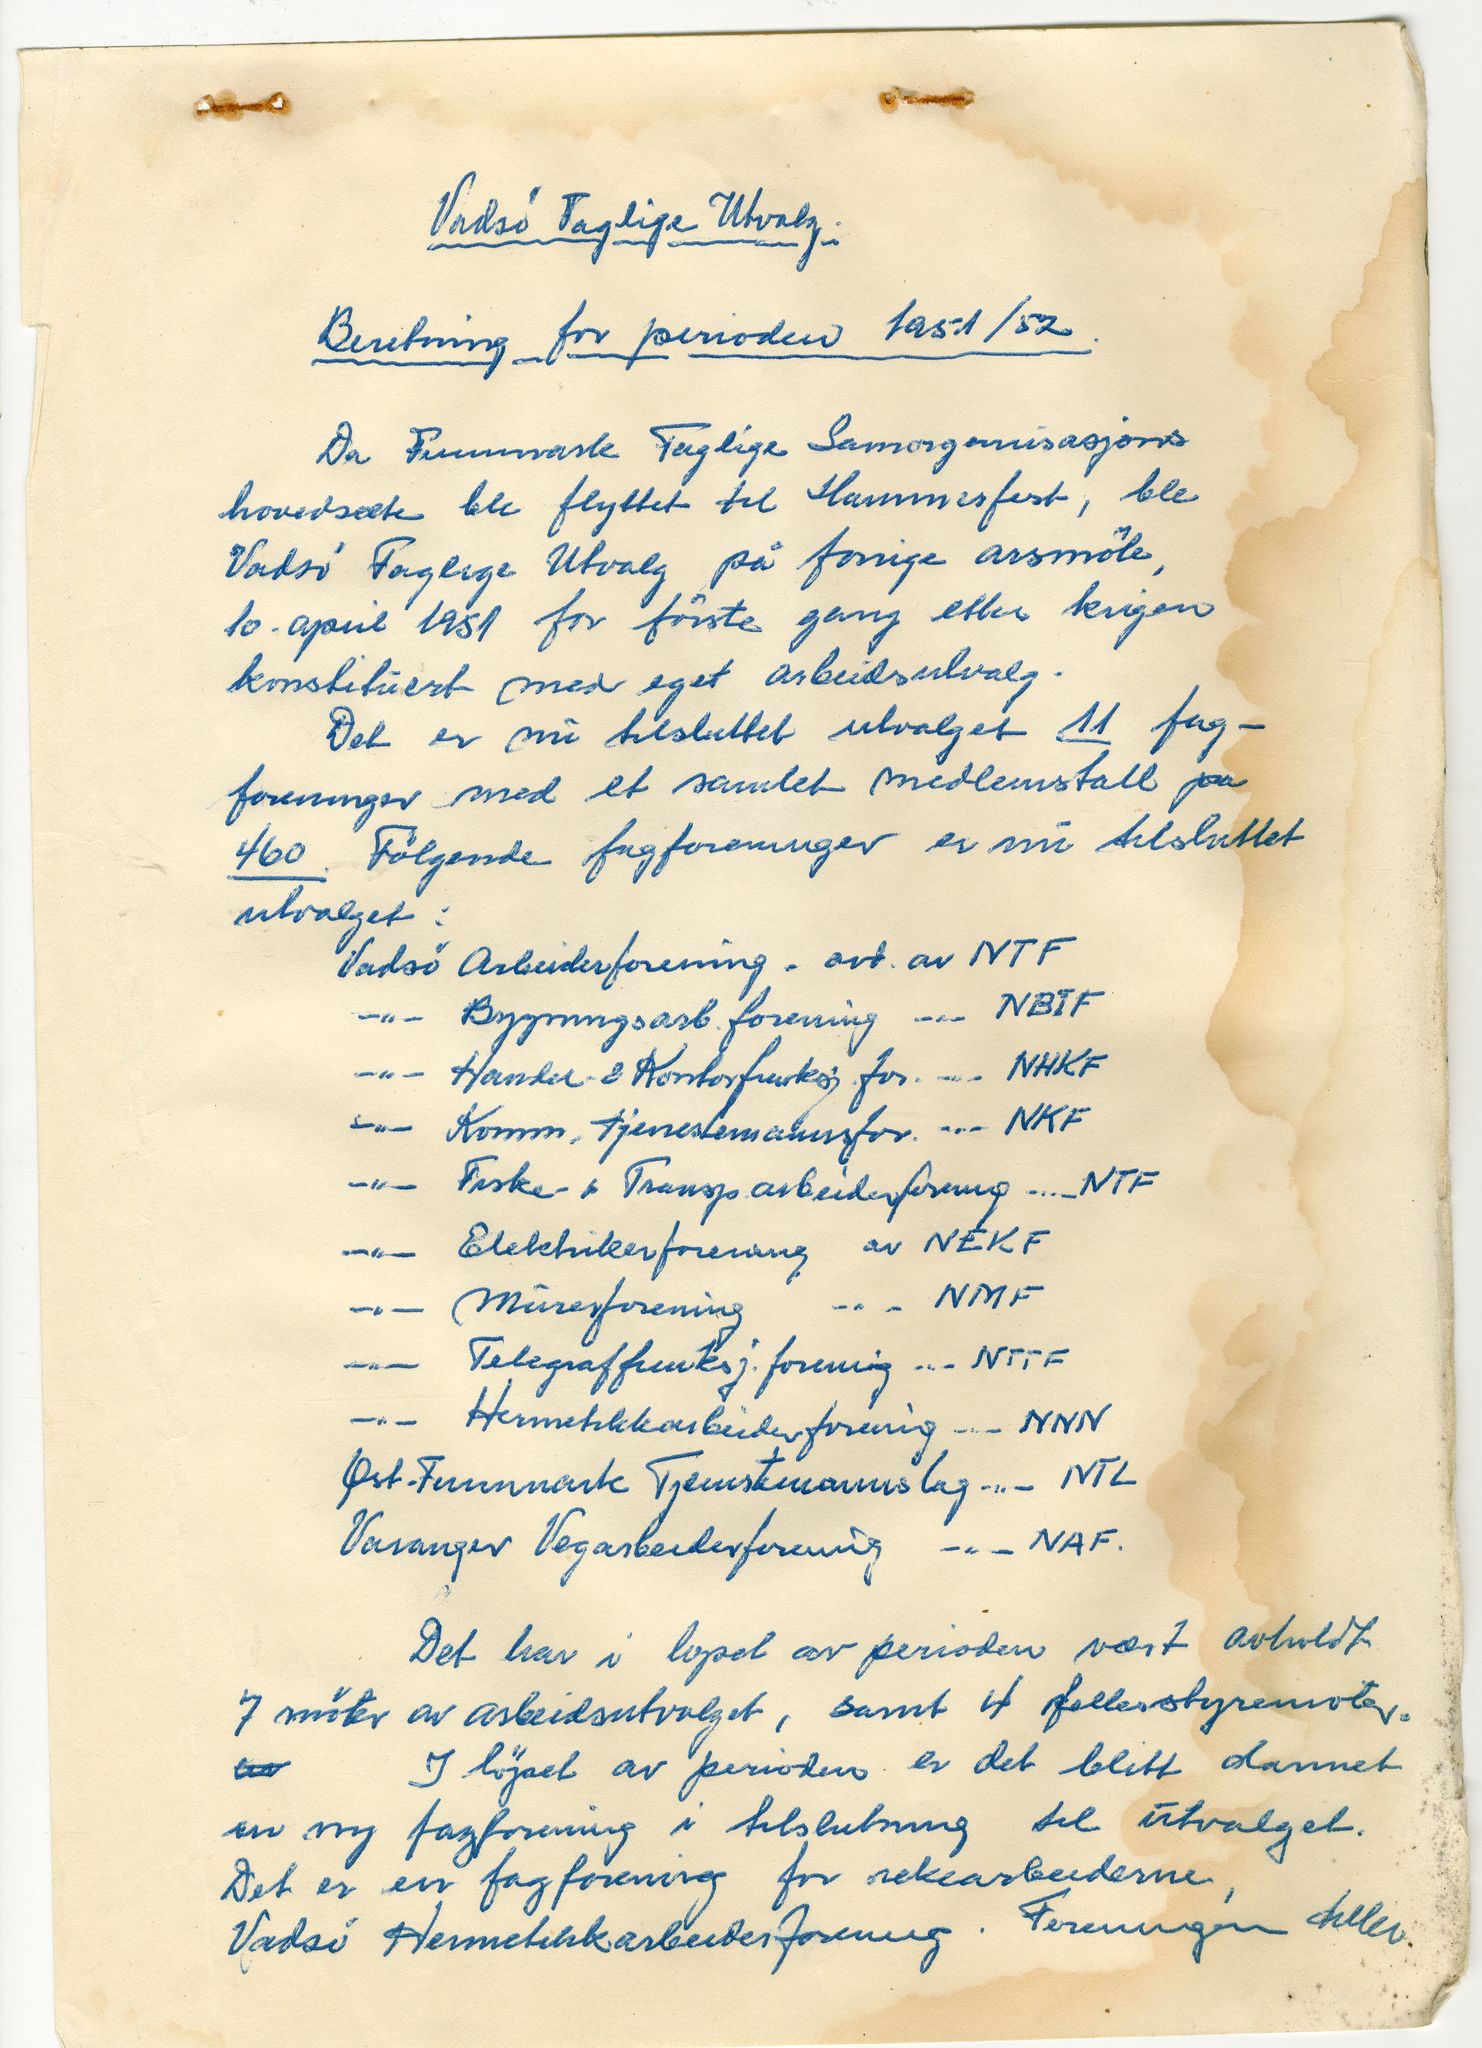 Vadsö Faglige Utvalg.
Beretning for perioden 1951/52.
Da Finnmark Faglige Samorganisasjons
hovedsete ble flyttet til Hammerfest, ble
Vadsö Faglige Utvalg på forrige årsmöte,
10. april 1951 for förste gang etter krigen
konstituert med eget arbeidsutvalg.
Det er nu tilsluttet utvalget 11 fag-
foreninger med et samlet medlemstall på
460. Fölgende fagforeninger er nu tilsluttet
utvalget:
Vadsö Arbeiderforening - avd. av NTF
-"- Bygningsarb. forening -"- NBIF
-"- Handel- & Kontorfunksj. for. -"- NHKF
-"- Komm. tjenestemannsfor. -"- NKF
-"- Fiske- & Transp.arbeiderforening -"- NTF
-"- Elektrikerforening av NEKF
-"- Murerforening -"- NMF
-"- Telegraffunksj. forening -"- NTTF
-"- Hermetikkarbeiderforening -"- NNN
Øst-Finnmark Tjenstemannslag -"- NTL
Varanger Vegarbeiderforening -"- NAF.
Det har i löpet av perioden vært avholdt
7 möter av arbeidsutvalget, samt 4 fellesstyremöter.
I löpet av perioden er det blitt dannet
en ny fagforening i tilslutning til utvalget.
Det er en fagforening for rekearbeiderne,
Vadsö Hermetikkarbeiderforening. Foreningen teller